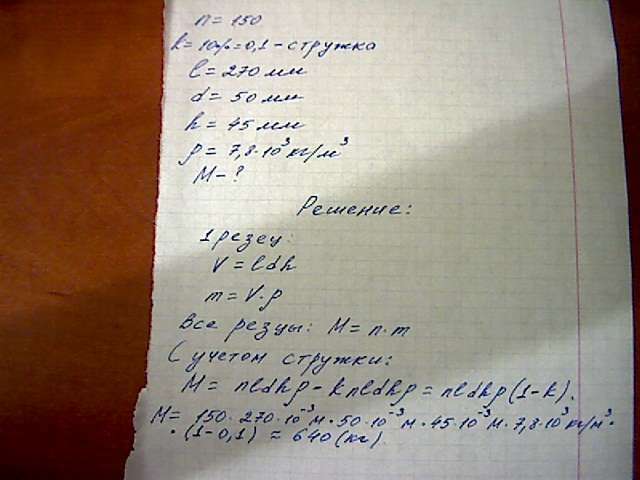 n = 150
k = 10% = 0,1 - стружка
l = 270 мм
d = 50 мм
h = 45 мм
ρ = 7,8·10³ кг/м³
M - ?
Решение:
1 резец:
V = ldh
m = V·ρ
Все резцы: M = n·m
С учетом стружки:
M = nldhρ - knldhρ = nldhρ(1-k).
M = 150·270·10⁻³ м·50·10⁻³ м·45·10⁻³ м·7,8·10³ кг/м³·
·(1-0,1) ≈ 640 (кг)